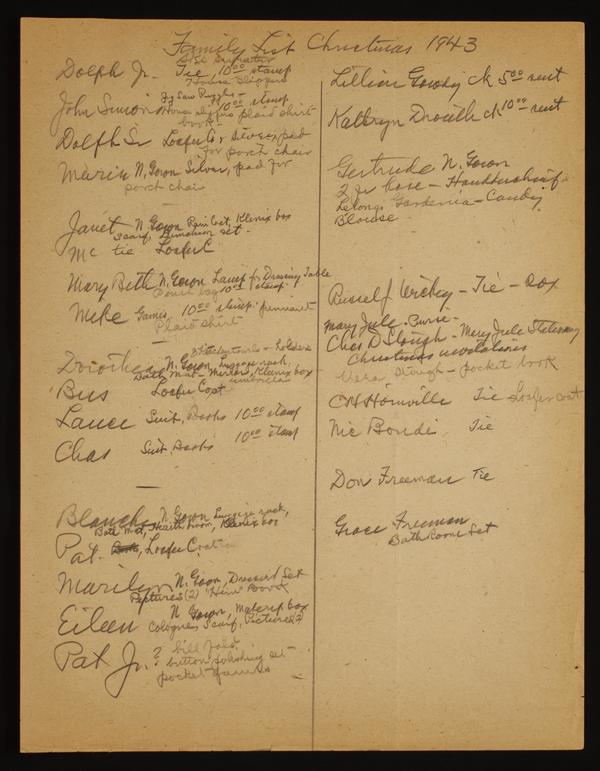 Family List Christmas 1943
Dolph Jr. Tie 10.00 stamp
House slippers
John Simon Jig Saw Puzzle -
House slippers plaid shirt
10.00 stamp
book -
Dolph Sr Loafer C, Silver, pad
for porch chair
Marie N. Gown Silver, pad for
porch chair
Janet N. Gown Rain Coat, Klenix box
Scarf, set -
Mc tie Loafer C
Mary Beth N. Gown Lamp for Dressing Table
10.00 stamp
Mike Games 10.00 stamp pennant
Plaid shirt
holders
Dorothea N. Gown Luggage rack,
Bath Mat - Mirrors, Klenix box
umbrella
Bus Loafer Coat
Lance Suit, Books 10.00 stamp
Chas Suit, Books 10.00 stamp
Blanche N. Gown Luggage rack,
Bath Mat, Hearth broom, Klenix box
Pat - Loafer Coat
Marilyn N. Gown, Dresser Set
Pictures (2) "Hem" Book
Eileen N Gown, Makeup box
Cologne, Scarf, Pictures (2)
Pat Jr. ? bill fold,
? button polishing set -
pocket games
Lillian Gowdy ck 5.00 sent
Kathryn Drouth ck 10.00 sent
Gertrude N. Gown
2 pr hose - Handkerchief -
Lelong Gardenia - Candy
Blouse
Russell Wickey - Tie - sox
Mary Jule - Purse -
Chas D Slough - Mary Jule Stationary
Christmas invitations
Vera Slough - pocket book
CH Hornville Tie Loafer coat
Nic Bondi Tie
Don Freeman Tie
Grace Freeman
Bath Room Set